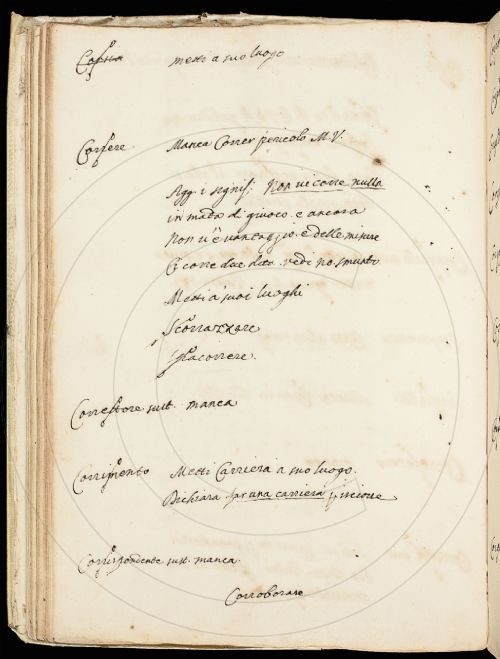 metti a suo luogo
Correre Manca Correr pericolo M. V.
Agg. i signif. Non ui corre nulla
in mat.a di giuoco e ancora
Non u'è uantaggio. e delle misure
Ci corre due dita. vedi no. smunto
Metti a' suoi luoghi
Scorrazzare
Correttore sust. manca
Corrimento Metti Carriera a suo luogo.
Dichiara far una carriera
Corrispondente sust. manca.
Corroborare